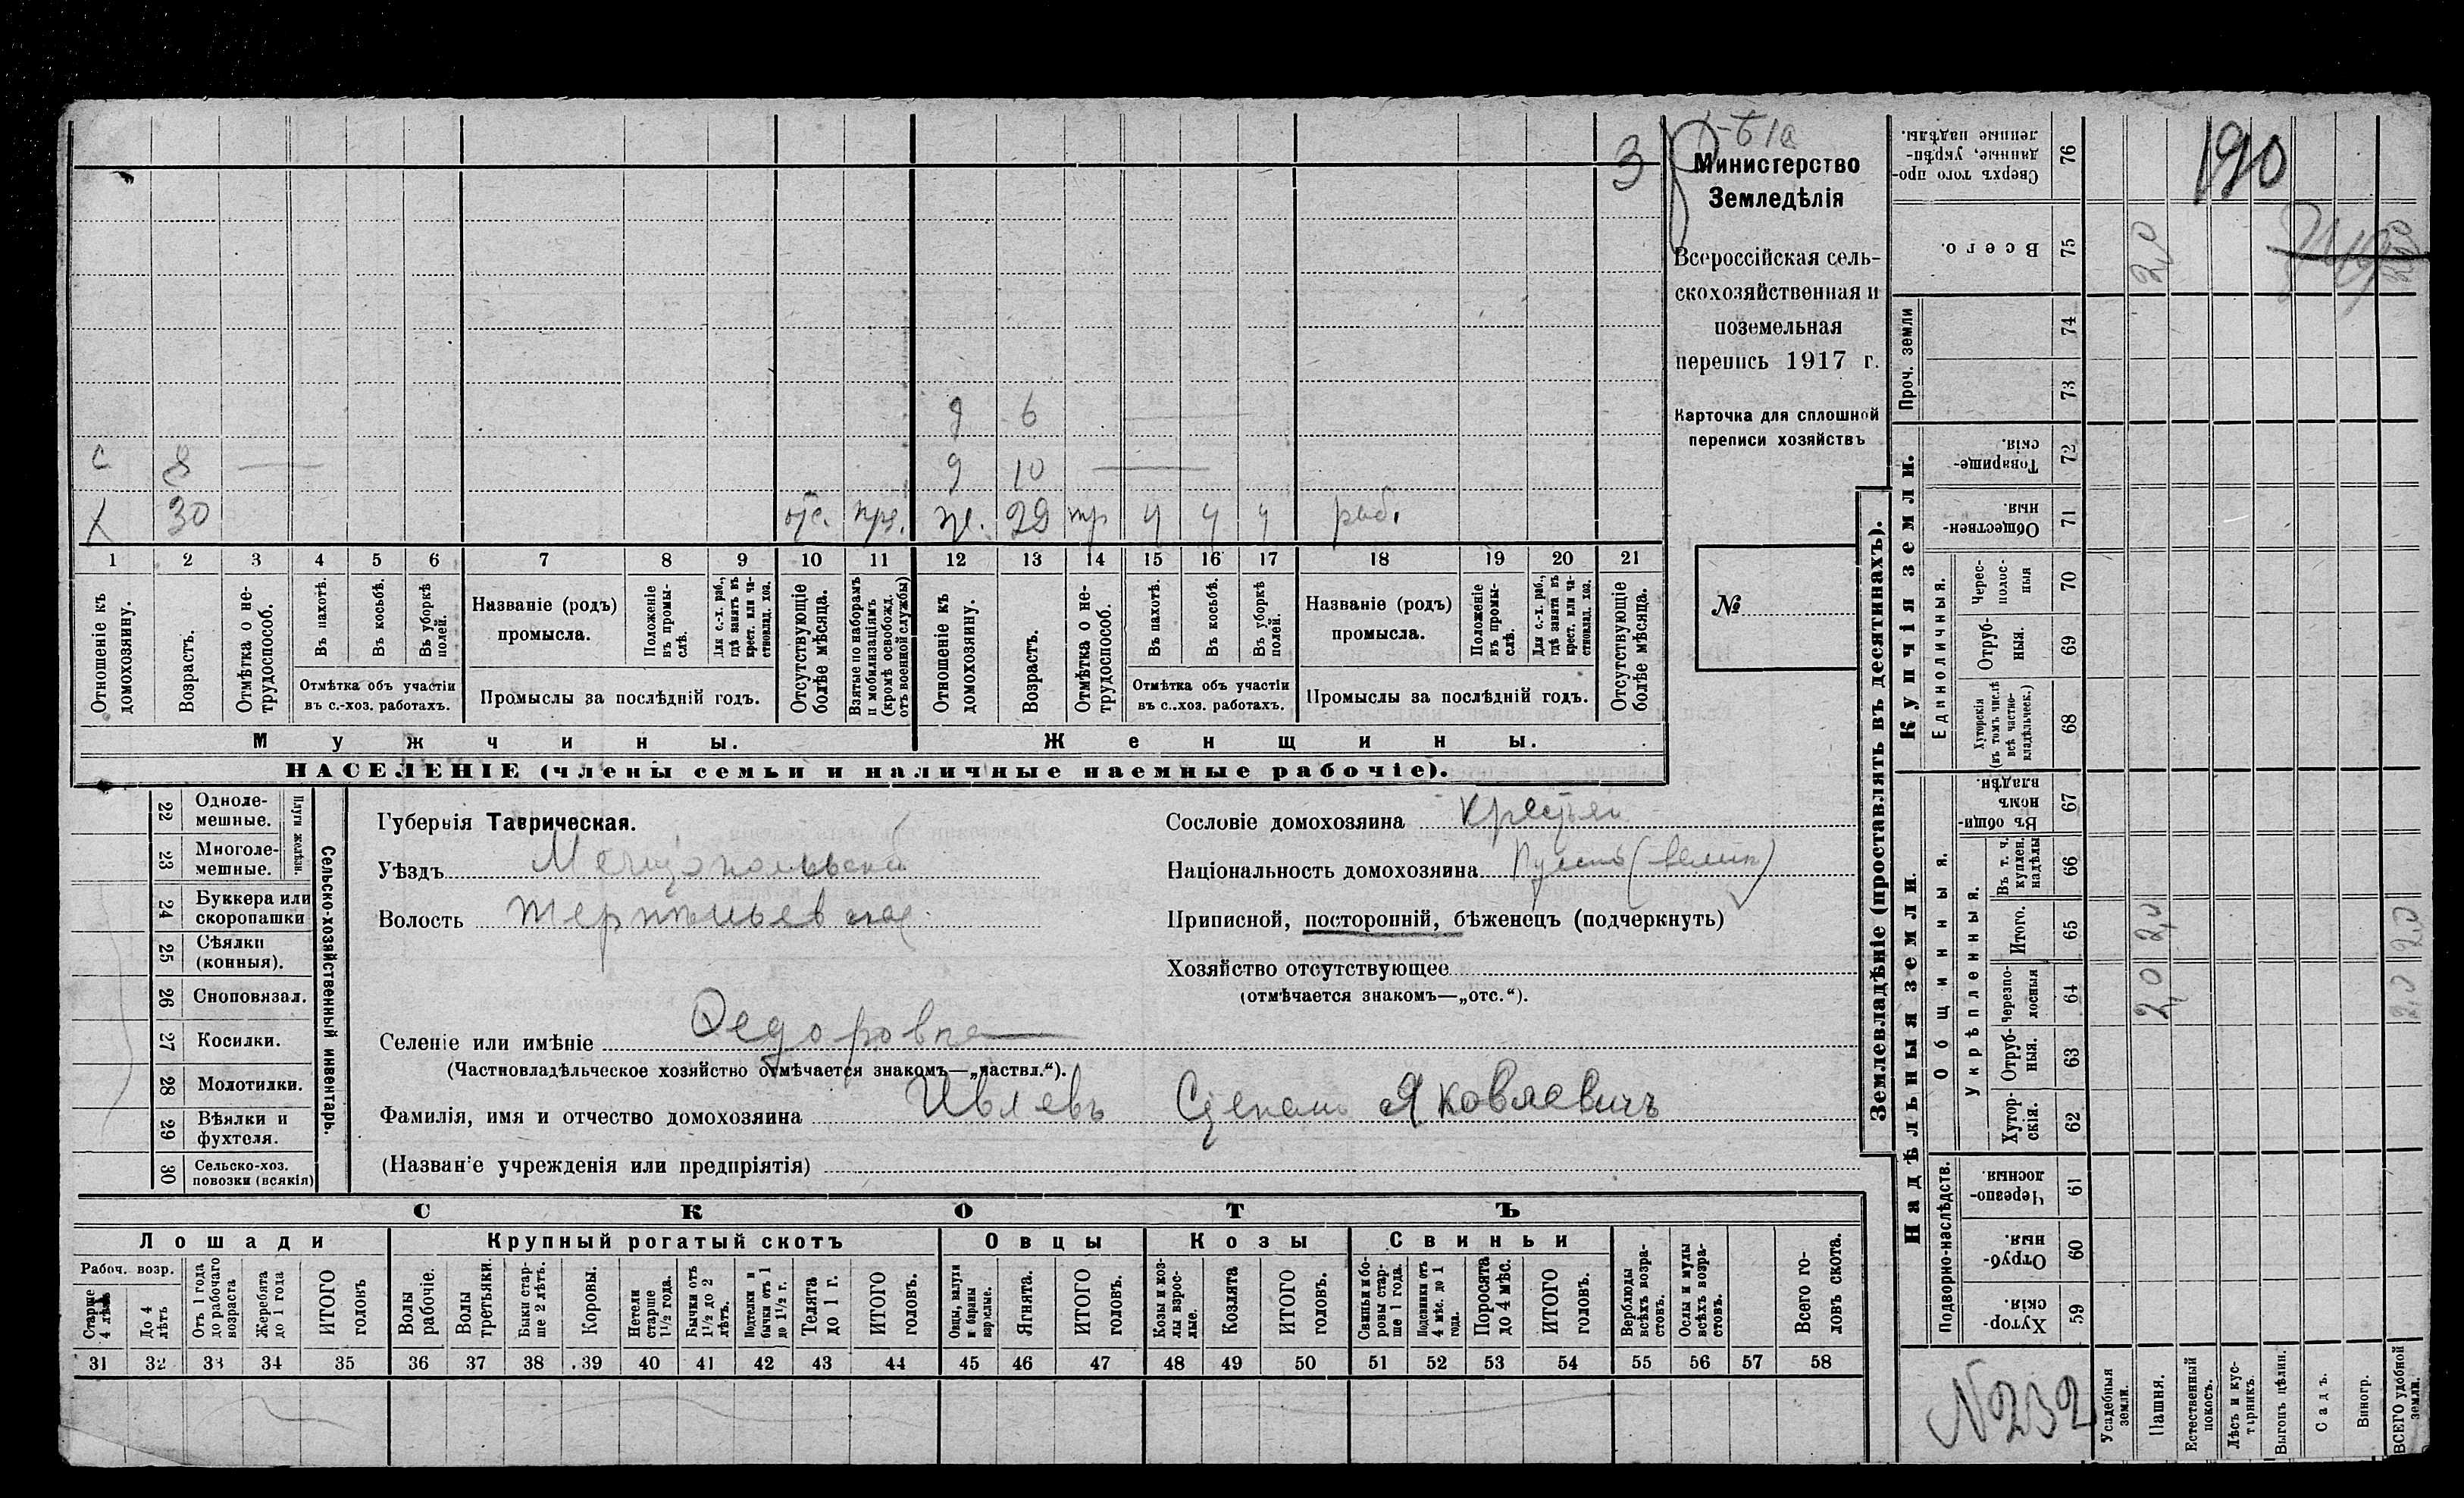 3
190
Министерство
Земледѣлія
Всероссійская сель-
скохозяйственная и
поземельная
перепись 1917 г.
Карточка для сплошной
переписи хозяйствъ
№
д 6
с 8 д 10
х 30 отс. 29 ч ч ч раб.
1 2 3 4 5 6 7 8 9 10 11 12 13 14 15 16 17 18 19 20 21
Отношеніе къ домохозяину.
Возрастъ.
Отмѣтка о не-трудоспособ.
Въ пахотѣ.
Въ косьбѣ.
Въ уборкѣ полей.
Отмѣтка объ участіи въ с.-хоз. работахъ.
Названіе (родъ) промысла.
Положеніе въ промы-слѣ.
Для с.-х. раб., гдѣ занятъ въ крест. или ча-стновлад. хоз.
Промыслы за послѣдній годъ.
Отсутствующіе болѣе мѣсяца.
Взятые по наборамъ и мобилизаціямъ (кромѣ освобожд. отъ военной службы)
Отношеніе къ домохозяину.
Возрастъ.
Отмѣтка о не-трудоспособ.
Въ пахотѣ.
Въ косьбѣ.
Въ уборкѣ полей.
Отмѣтка объ участіи въ с..хоз. работахъ.
Названіе (родъ) промысла.
Положеніе въ промы-слѣ.
Для с.-х. раб., гдѣ занята въ крест. или ча-стновлад. хоз.
Промыслы за послѣдній годъ.
Отсутствующіе болѣе мѣсяца.
Мужчины. Женщины.
НАСЕЛЕНІЕ (члены семьи и наличные наемные рабочіе).
22 Одноле-мешные.
23 Многоле-мешные.
Плуги желѣзн.
24 Буккера или скоропашки
25 Сѣялки (конныя).
26 Сноповязал.
27 Косилки.
28 Молотилки.
29 Вѣялки и фухтеля.
30 Сельско-хоз. повозки (всякія)
Сельско-хозяйственный инвентарь.
Губернія Таврическая.
Уѣздъ Мелитопольскій
Волость
Селеніе или имѣніе Федоровка
(Частновладѣльческое хозяйство отмѣчается знакомъ—„частвл.“).
Фамилія, имя и отчество домохозяина Ивлевъ Степанъ Яковлевичъ
(Названіе учрежденія или предпріятія)
Сословіе домохозяина Крестьян
Національность домохозяина
Приписной, посторонній, бѣженецъ (подчеркнуть)
Хозяйство отсутствующее
(отмѣчается знакомъ—„отс.“).
СКОТЪ
Лошади Крупный рогатый скотъ Овцы Козы Свиньи
Рабоч. возр.
Старше 4 лѣтъ
До 4 лѣтъ
Отъ 1 года до рабочаго возраста
Жеребята до 1 года
ИТОГО головъ
Волы рабочіе.
Волы третьяки.
Быки стар-ше 2 лѣтъ.
Коровы.
Нетели старше 1½ года.
Бычки отъ 1½ до 2 лѣтъ.
Подтелки и бычки отъ 1 до 1½ г.
Телята до 1 г.
ИТОГО головъ.
Овцы, валухи и бараны взрослые.
Ягнята.
ИТОГО головъ.
Козы и коз-лы взрос-лые.
Козлята
ИТОГО головъ.
Свиньи и бо-ровы стар-ше 1 года.
Подсвинки отъ 4 мѣс. до 1 года.
Поросята до 4 мѣс.
ИТОГО головъ.
Верблюды всѣхъ возра-стовъ.
Ослы и мулы всѣхъ возра-стовъ.
Всего го-ловъ скота.
31 32 33 34 35 36 37 38 39 40 41 42 43 44 45 46 47 48 49 50 51 52 53 54 55 56 57 58
Землевладѣніе (проставлять въ десятинахъ).
Надѣльныя земли.
Купчія земли.
Проч. земли
Подворно-наслѣдств.
Общинныя.
Укрѣпленныя.
Единоличныя.
Сверхъ того про-данные, укрѣп-ленные надѣлы. 76
Всего. 75 2,0
74
73
Товарище-скія. 72
Обществен-ныя. 71
Черес-полос-ныя 70
Отруб-ныя. 69
Хуторскія (въ томъ числѣ всѣ частно-владѣльческ.) 68
Въ общи-номъ владѣн. 67
Въ т. ч. куплен. надѣлы 66
Итого. 65 2,0 2,0
Черезпо-лосныя 64 2,0 2,0
Отруб-ныя. 63
Хутор-скія. 62
Черезпо-лосныя 61
Отруб-ныя. 60
Хутор-скія. 59
N232
Усадебныя земли.
Пашня.
Естественный покосъ.
Лѣсъ и кус-тарникъ.
Выгонъ цѣлин.
Садъ.
Виногр.
ВСЕГО удобной земли.